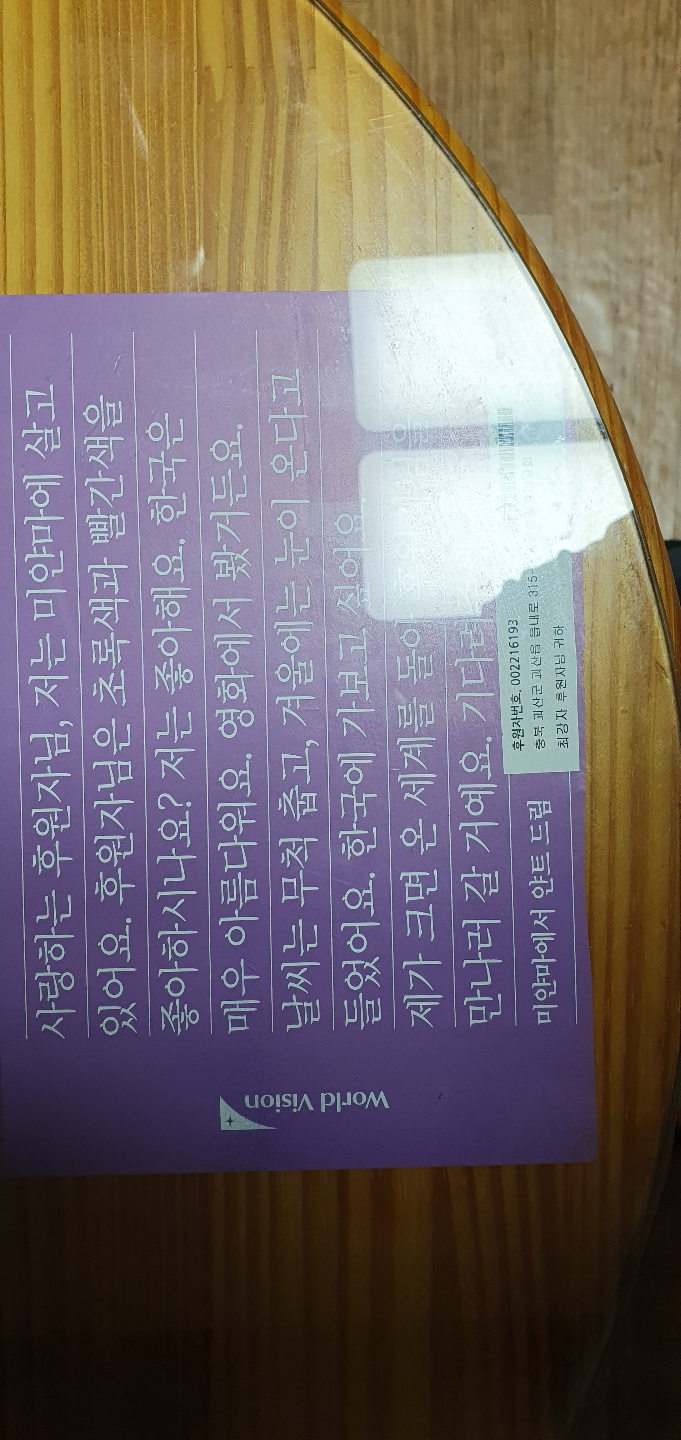 사랑하는 후원자님, 저는 미얀마에 살고
있어요. 후원자님은 초록색과 빨간색을
좋아하시나요? 저는 좋아해요. 한국은
매우 아름다워요. 영화에서 봤거든요.
날씨는 무척 춥고, 겨울에는 눈이 온다고
들었어요. 한국에 가보고 싶어요.
제가 크면 온 세계를 돌아
만나러 갈 거예요.
미얀마에서 얀트 드림
후원자번호. 002216193
충북 괴산군 괴산읍 읍내로 315-
최강자 후원자님 귀하
World Vision